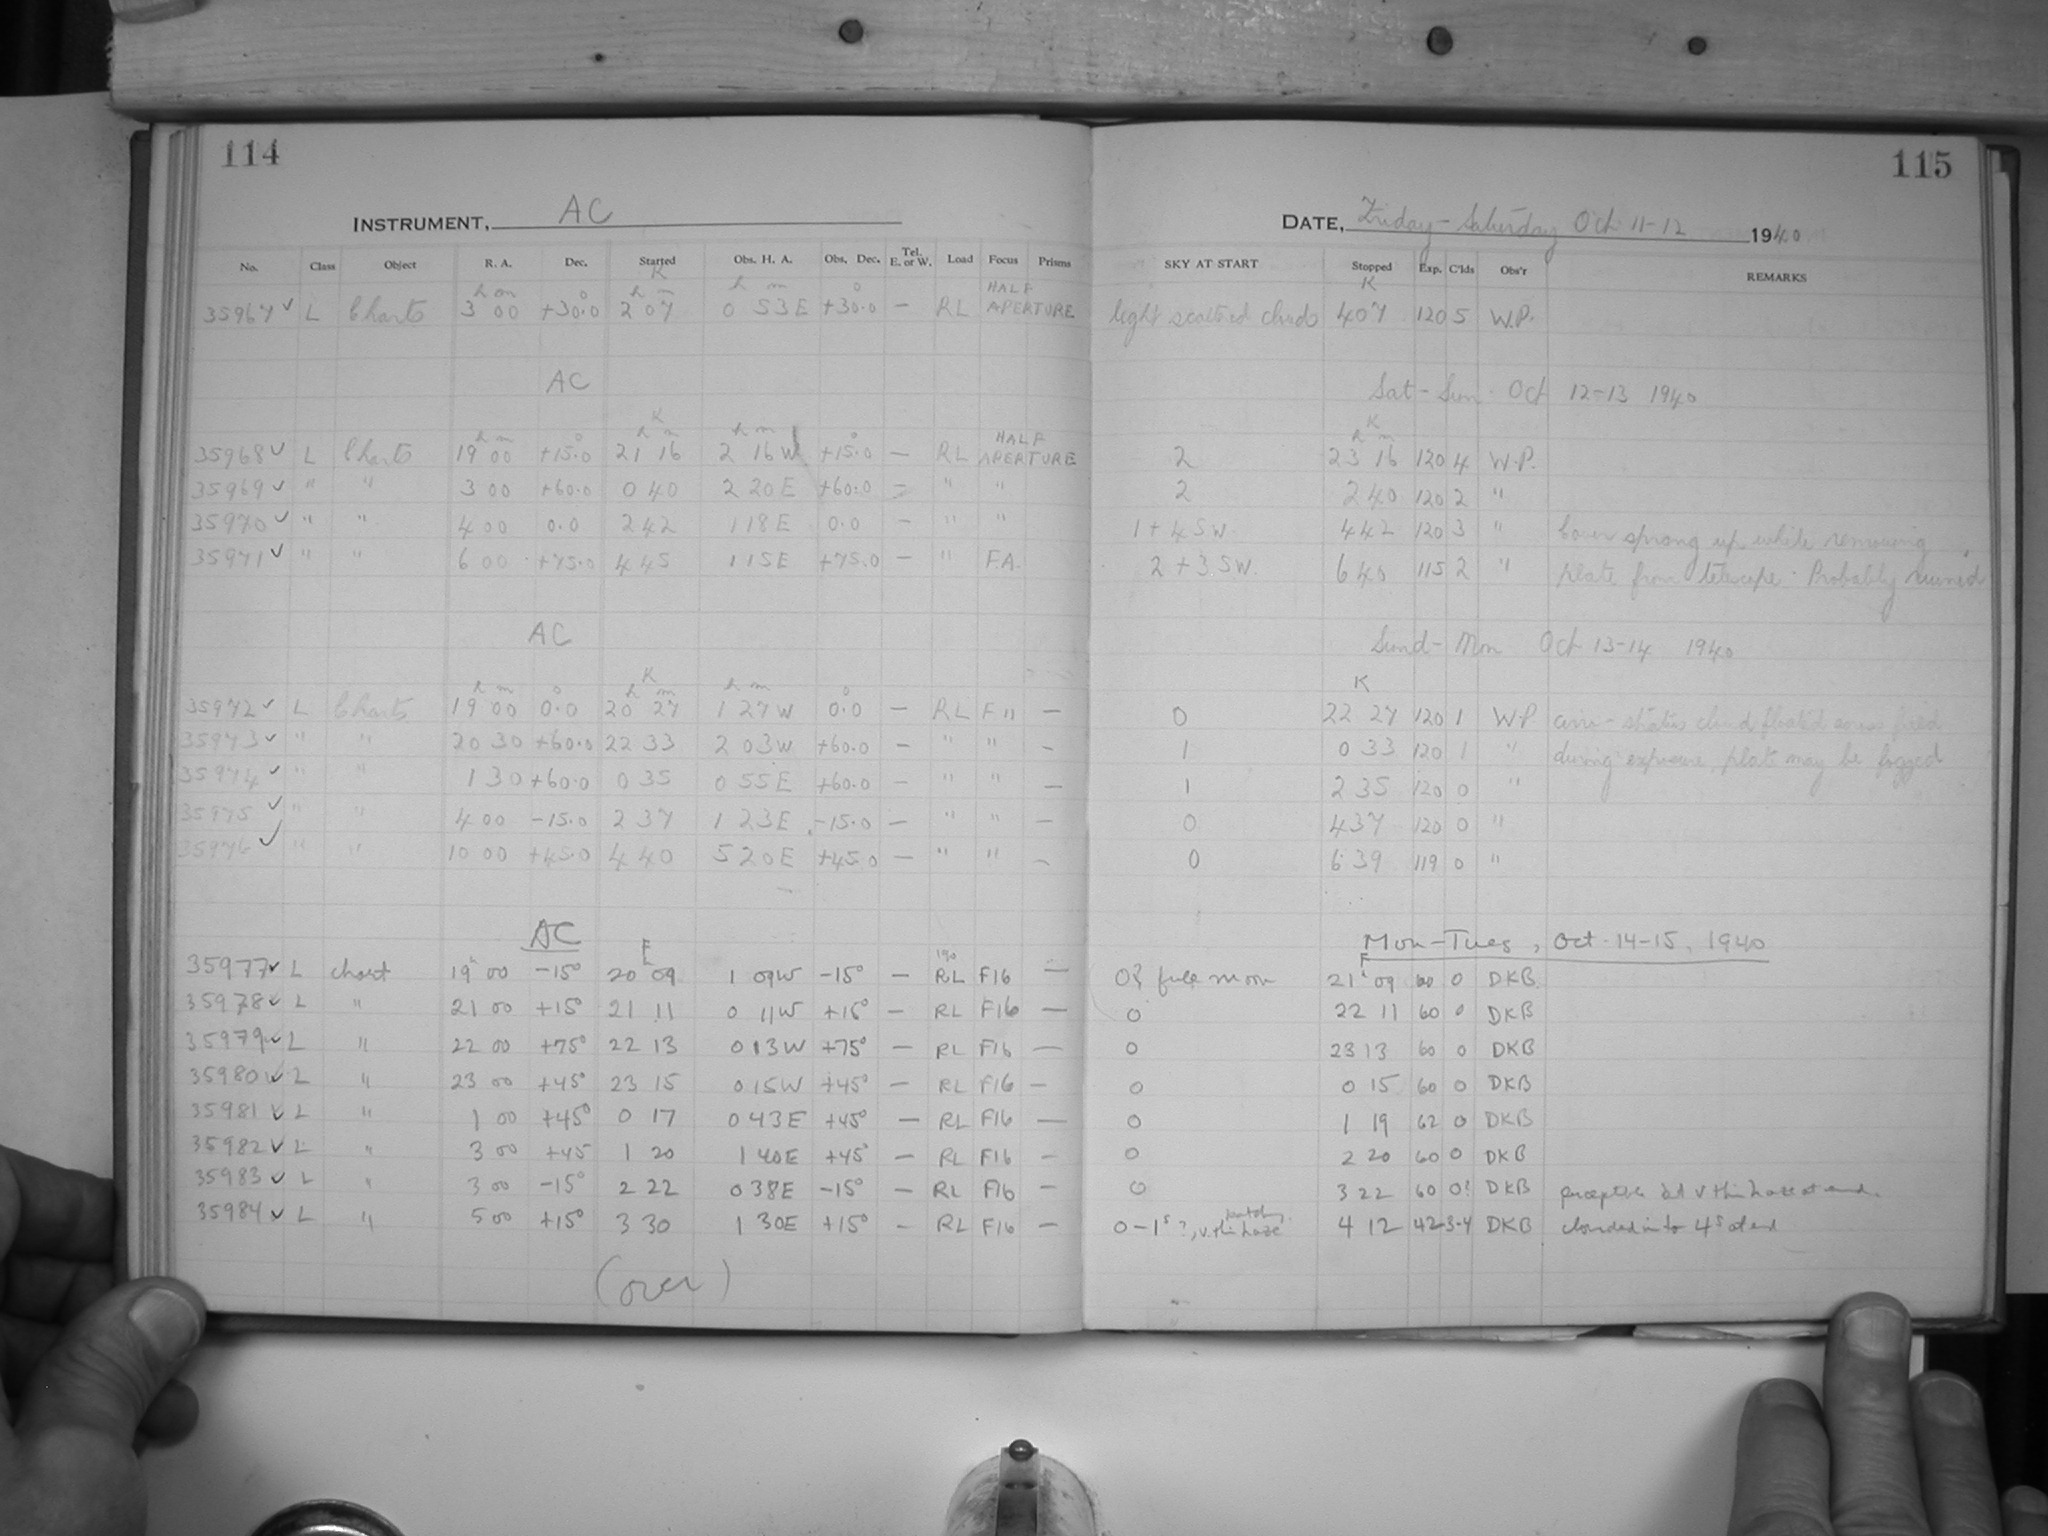 114
115
INSTRUMENT, AC
DATE, Friday - Saturday Oct 11-12 1940
No. Class Object R. A. Dec. Started Obs. H. A. Obs. Dec. Tel. E. or W. Load Focus Prisms SKY AT START Stopped Exp. C'lds Obs'r REMARKS
h m o h m K h m o HALF K
35967 ✓ L Charts 3 00 +30.0 2 07 0 53 E +30.0 — RL APERTURE light scattered clouds 4 07 120 5 W.P.
AC Sat - Sun Oct 12-13 1940
h m o K h m h m o HALF K h m
35968 ✓ L Charts 19 00 +15.0 21 16 2 16 W +15.0 — RL APERTURE 2 23 16 120 4 W.P.
35969 ✓ " " 3 00 +60.0 0 40 2 20 E +60.0 — " " 2 2 40 120 2 "
35970 ✓ " " 4 00 0.0 2 42 1 18 E 0.0 — " " 1 + 4 SW. 4 42 120 3 " Cover sprang up while removing
35971 ✓ " " 6 00 +75.0 4 45 1 15 E +75.0 — " FA. 2 + 3 SW. 6 40 115 2 " plate from telescope. Probably ruined
AC Sund - Mon Oct 13-14 1940
h m o K h m h m o K
35972 ✓ L Charts 19 00 0.0 20 27 1 27 W 0.0 — RL F 11 — 0 22 27 120 1 W.P cirro-stratus cloud floated across field
35973 ✓ " " 20 30 +60.0 22 33 2 03 W +60.0 — " " — 1 0 33 120 1 " during exposure, plate may be fogged
35974 ✓ " " 1 30 +60.0 0 35 0 55 E +60.0 — " " — 1 2 35 120 0 "
35975 ✓ " " 4 00 -15.0 2 37 1 23 E -15.0 — " " — 0 4 37 120 0 "
35976 ✓ " " 10 00 +45.0 4 40 5 20 E +45.0 — " " — 0 6 39 119 0 "
AC Mon-Tues, Oct. 14-15, 1940
35977 ✓ L chart 19h 00 -15° 20 09 1 09W -15° — RL F16 — 0? full moon 21 09 60 0 DKB
35978 ✓ L " 21 00 +15° 21 11 0 11W +15° — RL F16 — 0 22 11 60 0 DKB
35979 ✓ L " 22 00 +75° 22 13 0 13W +75° — RL F16 — 0 23 13 60 0 DKB
35980 ✓ L " 23 00 +45° 23 15 0 15W +45° — RL F16 — 0 0 15 60 0 DKB
35981 ✓ L " 1 00 +45° 0 17 0 43E +45° — RL F16 — 0 1 19 62 0 DKB
35982 ✓ L " 3 00 +45 1 20 1 40E +45° — RL F16 — 0 2 20 60 0 DKB
35983 ✓ L " 3 00 -15° 2 22 0 38E -15° — RL F16 — 0 3 22 60 0? DKB perceptible v thin haze at end.
35984 ✓ L " 5 00 +15° 3 30 1 30E +15° — RL F16 — 0-1s?, v. thin patchy haze 4 12 42 3-4 DKB clouded into 4s at end
(over)